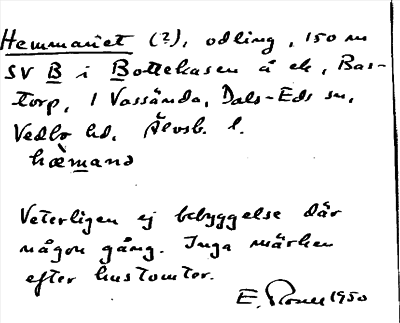 Hemmanet (?), odling, 150 m
SV B i Bottehasen å ek, Bas-
torp, 1 Vassända, Dals-Eds sn,
Vedbo hd, Älvsb. l.
hæ̀mand
Veterligen ej bebyggelse där
någon gång. Inga märken
efter hustomter.
E. 1950